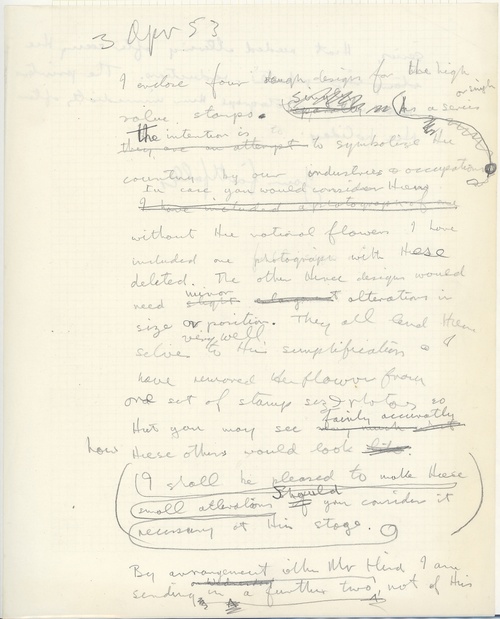 3 Apr 53
I enclose four rough designs for the high
value stamps. (as a series or singly
the intention is
they are an attempt to symbolise the
country by our industries & occupations
In case you would consider them
I have included a photograph of one
without the national flowers I have
included one photograph with these
deleted. The other three designs would
need minor slight alterations in
size or position. They all lend them
selves very well to this simplification &
have removed the flower from
one set of stamp sized photos so
that you may see fairly accurately
how these others would look like.
(I shall be pleased to make these
small alterations should if you consider it
necessary at this stage.)
By arrangement with Mr Hind I am
on Wednesday
sending in a further two, not of this